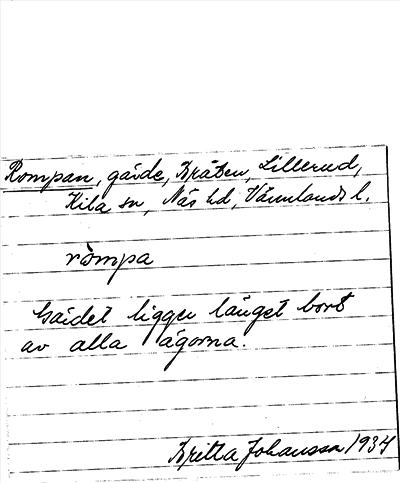 Rompan, gärde, Bråten, Lillerud,
Kila sn, Näs hd, Värmlands l.
ròmpa
Gärdet ligger länget bort
av alla ägorna.
Britta Johansson 1934